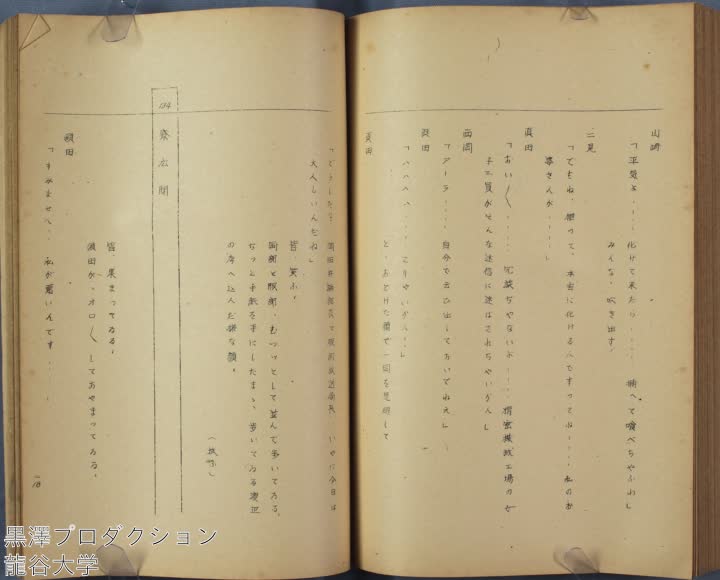 山崎
「平気よ……化けて来たら……捕へて喰べちやふわ」
みんな、吹き出す。
二見
「でもね、狸つて、本当に化けるんですつてね……私のお
婆さんが……」
真田
「おい〳〵……冗談ぢやないよ……精密機械工場の女
子工員がそんな迷信に迷はされちやいかん」
西岡
「アーラ……自分で云ひ出しておいてねえ」
真田
「ハハハハ……こりやいかん……」
と、おどけた顔で一同を見廻して
真田
「どうした？ 岡田青年隊長に服部放送局長 いやに今日は
大人しいんだね」
皆、笑ふ。
岡部と服部、むつッとして並んで歩いてゐる。
ちつと手紙を手にしたまゝ、歩いてゐる渡辺
の考へ込んだ様な顔。
104 寮 広間
皆、集まつてゐる。
須田が、オロ〳〵してあやまつてゐる。
須田
「すみません、私が悪いんです……
黒澤プロダクション
龍谷大学